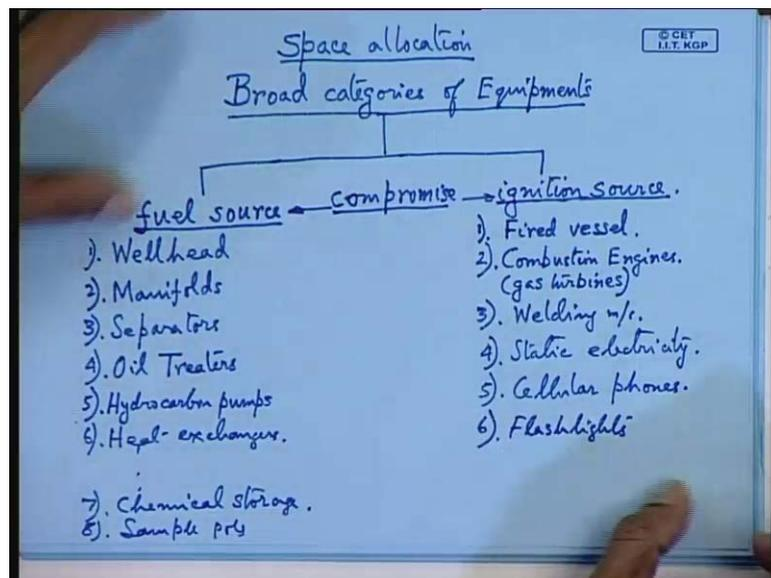 © CET
I.I.T. KGP
Space allocation
Broad categories of Equipments
fuel source
compromise
ignition source.
1). Wellhead
2). Manifolds
3). Separators
4). Oil Treaters
5). Hydrocarbon pumps
6). Heat-exchangers.
7). Chemical storage.
8). Sample pots
1). Fired vessel.
2). Combustion Engines.
(gas turbines)
3). Welding m/c.
4). Static electricity.
5). Cellular phones.
6). Flashlights